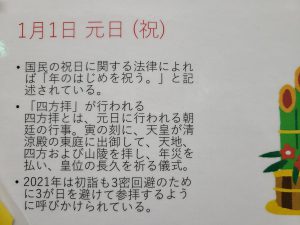 1月1日 元日 (祝)
• 国民の祝日に関する法律によれ
ば「年のはじめを祝う。」と記
述されている。
• 「四方拝」が行われる
四方拝とは、元日に行われる朝
廷の行事。寅の刻に、天皇が清
涼殿の東庭に出御して、天地、
四方および山陵を拝し、年災を
払い、皇位の長久を祈る儀式。
• 2021年は初詣も3密回避のため
に3が日を避けて参拝するよう
に呼びかけられている。